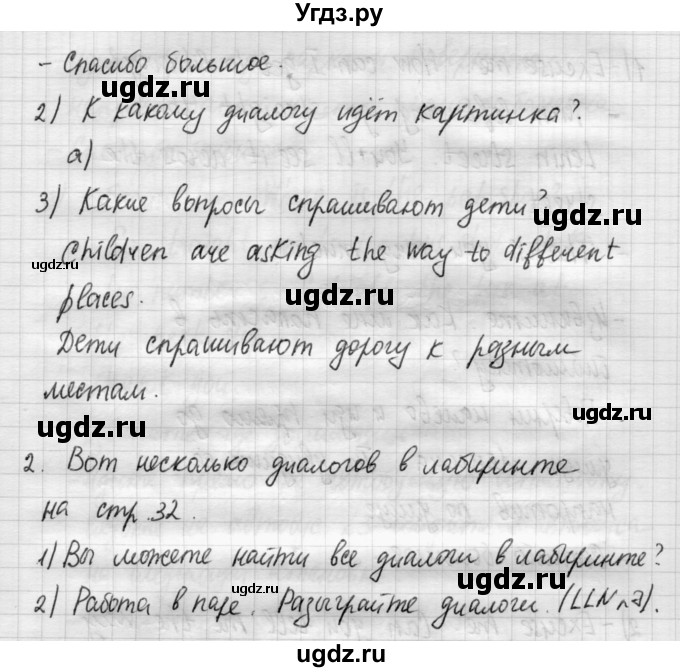 Угдз.ру
- Спасибо большое.
2) К какому диалогу идёт картинка?
а)
3) Какие вопросы спрашивают дети?
Children are asking the way to different
places.
Дети спрашивают дорогу к разным
местам.
2. Вот несколько диалогов в лабиринте
на стр. 32.
1) Вы можете найти все диалоги в лабиринте?
2) Работа в паре. Разыграйте диалоги. (LLN n 7).
ugdz.ru
ugdz.ru
ugdz.ru
ugdz.ru
ugdz.ru
ugdz.ru
ugdz.ru
ugdz.ru
ugdz.ru
ugdz.ru
ugdz.ru
ugdz.ru
ugdz.ru